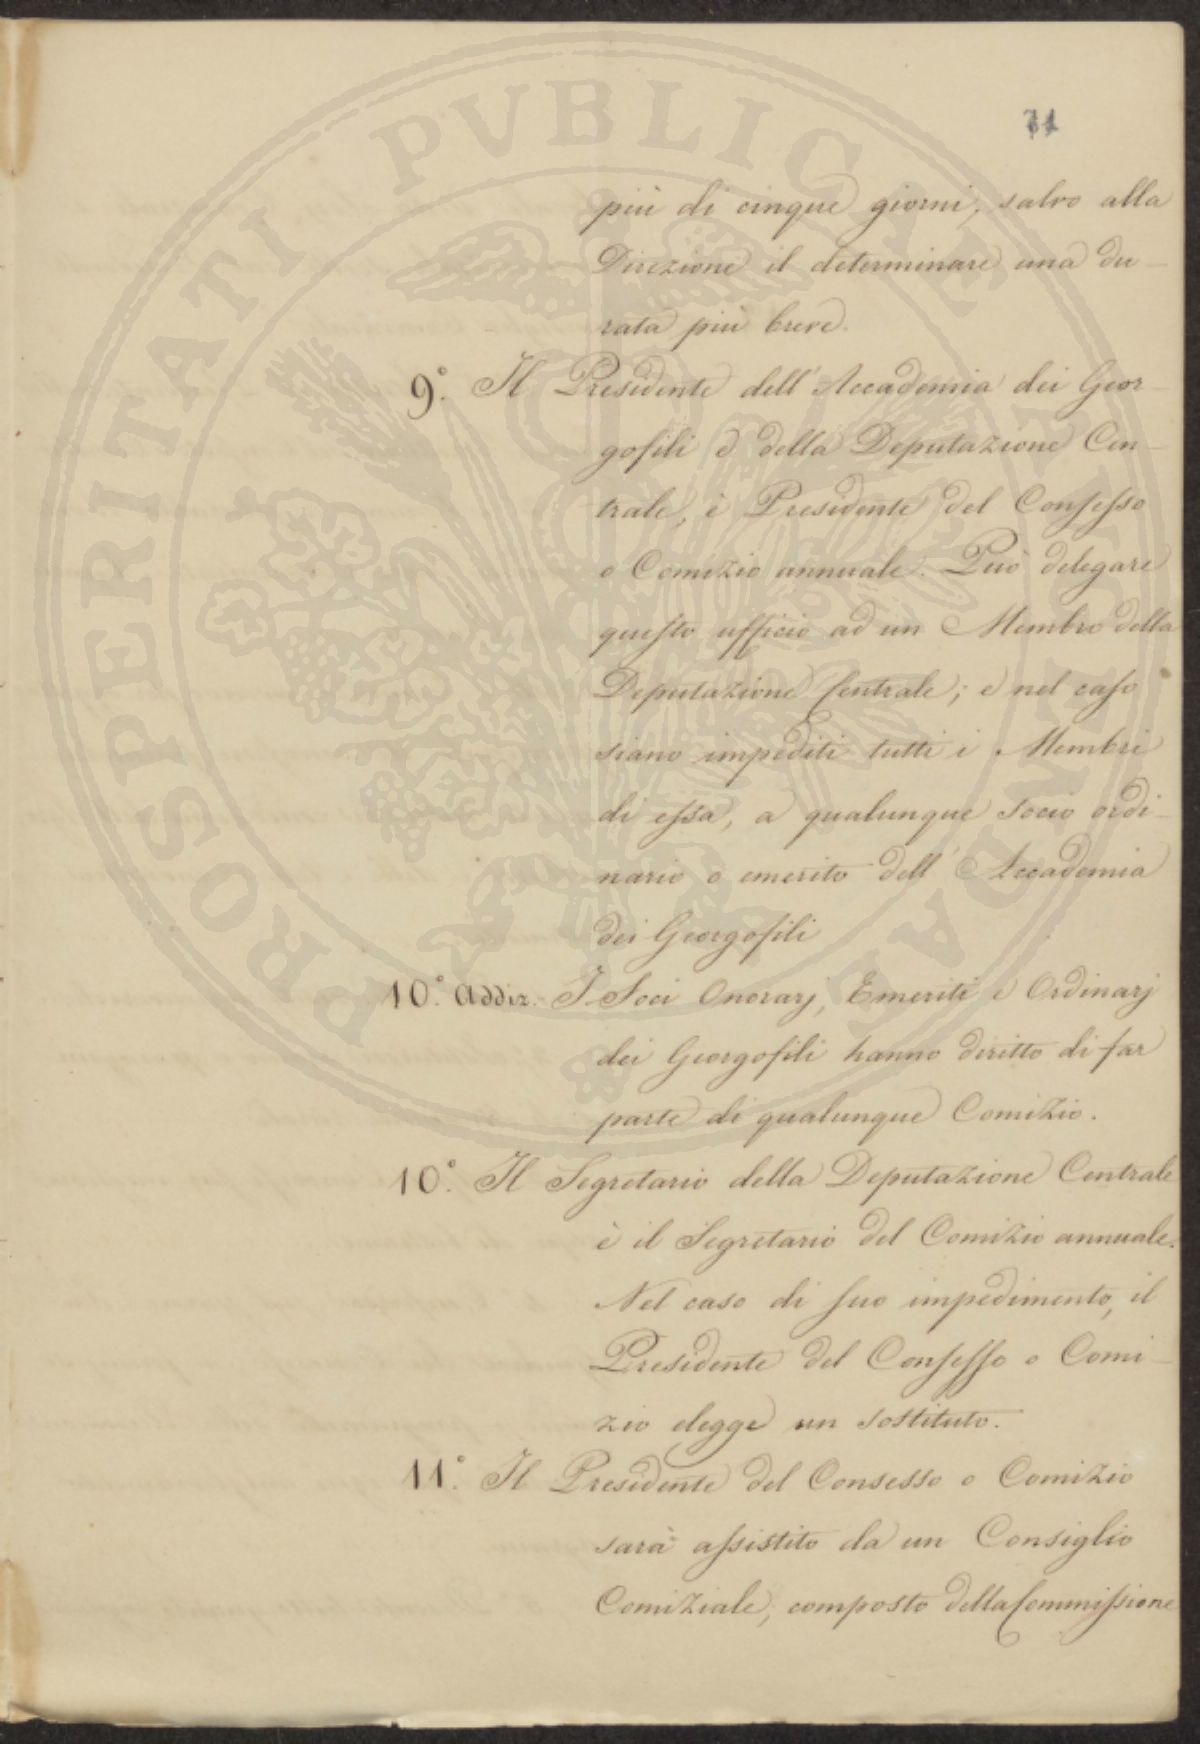 71
più di cinque giorni, salvo alla
Direzione il determinare una du-
rata più breve.
9.° Il Presidente dell'Accademia dei Geor-
gofili e della Deputazione Cen-
trale, è Presidente del Consesso
o Comizio annuale. Può delegare
questo ufficio ad un Membro della
Deputazione Centrale; e nel caso
siano impediti tutti i Membri
di essa, a qualunque Socio ordi-
nario o emerito dell'Accademia
dei Georgofili
10.° addiz. - I Soci Onorarj, Emeriti e Ordinarj
dei Georgofili hanno diritto di far
parte di qualunque Comizio.
10.° Il Segretario della Deputazione Centrale
è il Segretario del Comizio annuale.
Nel caso di suo impedimento, il
Presidente del Consesso o Comi-
zio elegge un sostituto.
11.° Il Presidente del Consesso o Comizio
sarà assistito da un Consiglio
Comiziale, composto della Commissione
PROSPERITATI PVBLICAE AVGENDAE